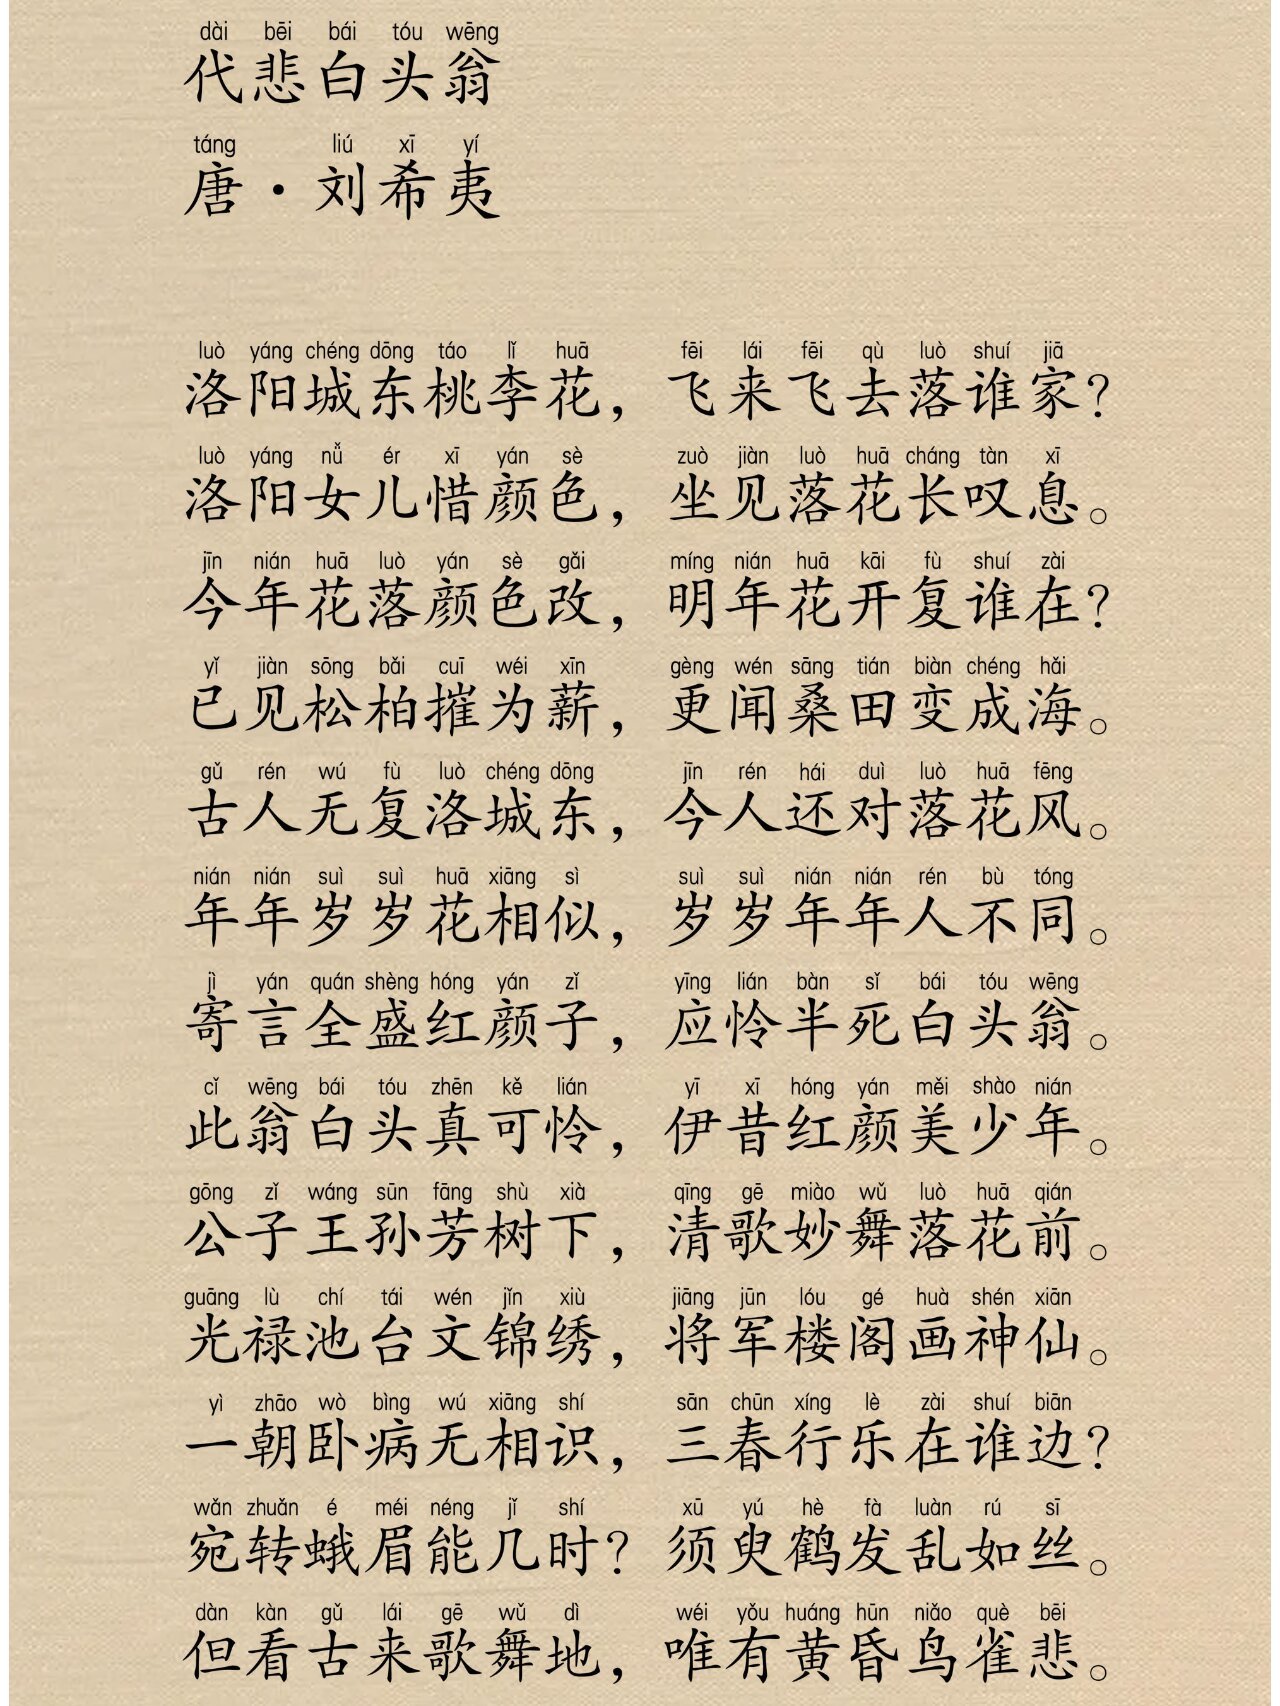 dài bēi bái tóu wēng
代悲白头翁
táng liú xī yí
唐·刘希夷
luò yáng chéng dōng táo lǐ huā fēi lái fēi qù luò shuí jiā
洛阳城东桃李花，飞来飞去落谁家？
luò yáng nǚ ér xī yán sè zuò jiàn luò huā cháng tàn xī
洛阳女儿惜颜色，坐见落花长叹息。
jīn nián huā luò yán sè gǎi míng nián huā kāi fù shuí zài
今年花落颜色改，明年花开复谁在？
yǐ jiàn sōng bǎi cuī wéi xīn gèng wén sāng tián biàn chéng hǎi
已见松柏摧为薪，更闻桑田变成海。
gǔ rén wú fù luò chéng dōng jīn rén hái duì luò huā fēng
古人无复洛城东，今人还对落花风。
nián nián suì suì huā xiāng sì suì suì nián nián rén bù tóng
年年岁岁花相似，岁岁年年人不同。
jì yán quán shèng hóng yán zǐ yīng lián bàn sǐ bái tóu wēng
寄言全盛红颜子，应怜半死白头翁。
cǐ wēng bái tóu zhēn kě lián yī xī hóng yán měi shào nián
此翁白头真可怜，伊昔红颜美少年。
gōng zǐ wáng sūn fāng shù xià qīng gē miào wǔ luò huā qián
公子王孙芳树下，清歌妙舞落花前。
guāng lù chí tái wén jǐn xiù jiāng jūn lóu gé huà shén xiān
光禄池台文锦绣，将军楼阁画神仙。
yì zhāo wò bìng wú xiāng shí sān chūn xíng lè zài shuí biān
一朝卧病无相识，三春行乐在谁边？
wǎn zhuǎn é méi néng jǐ shí xū yú hè fà luàn rú sī
宛转蛾眉能几时？须臾鹤发乱如丝。
dàn kàn gǔ lái gē wǔ dì wéi yǒu huáng hūn niǎo què bēi
但看古来歌舞地，唯有黄昏鸟雀悲。